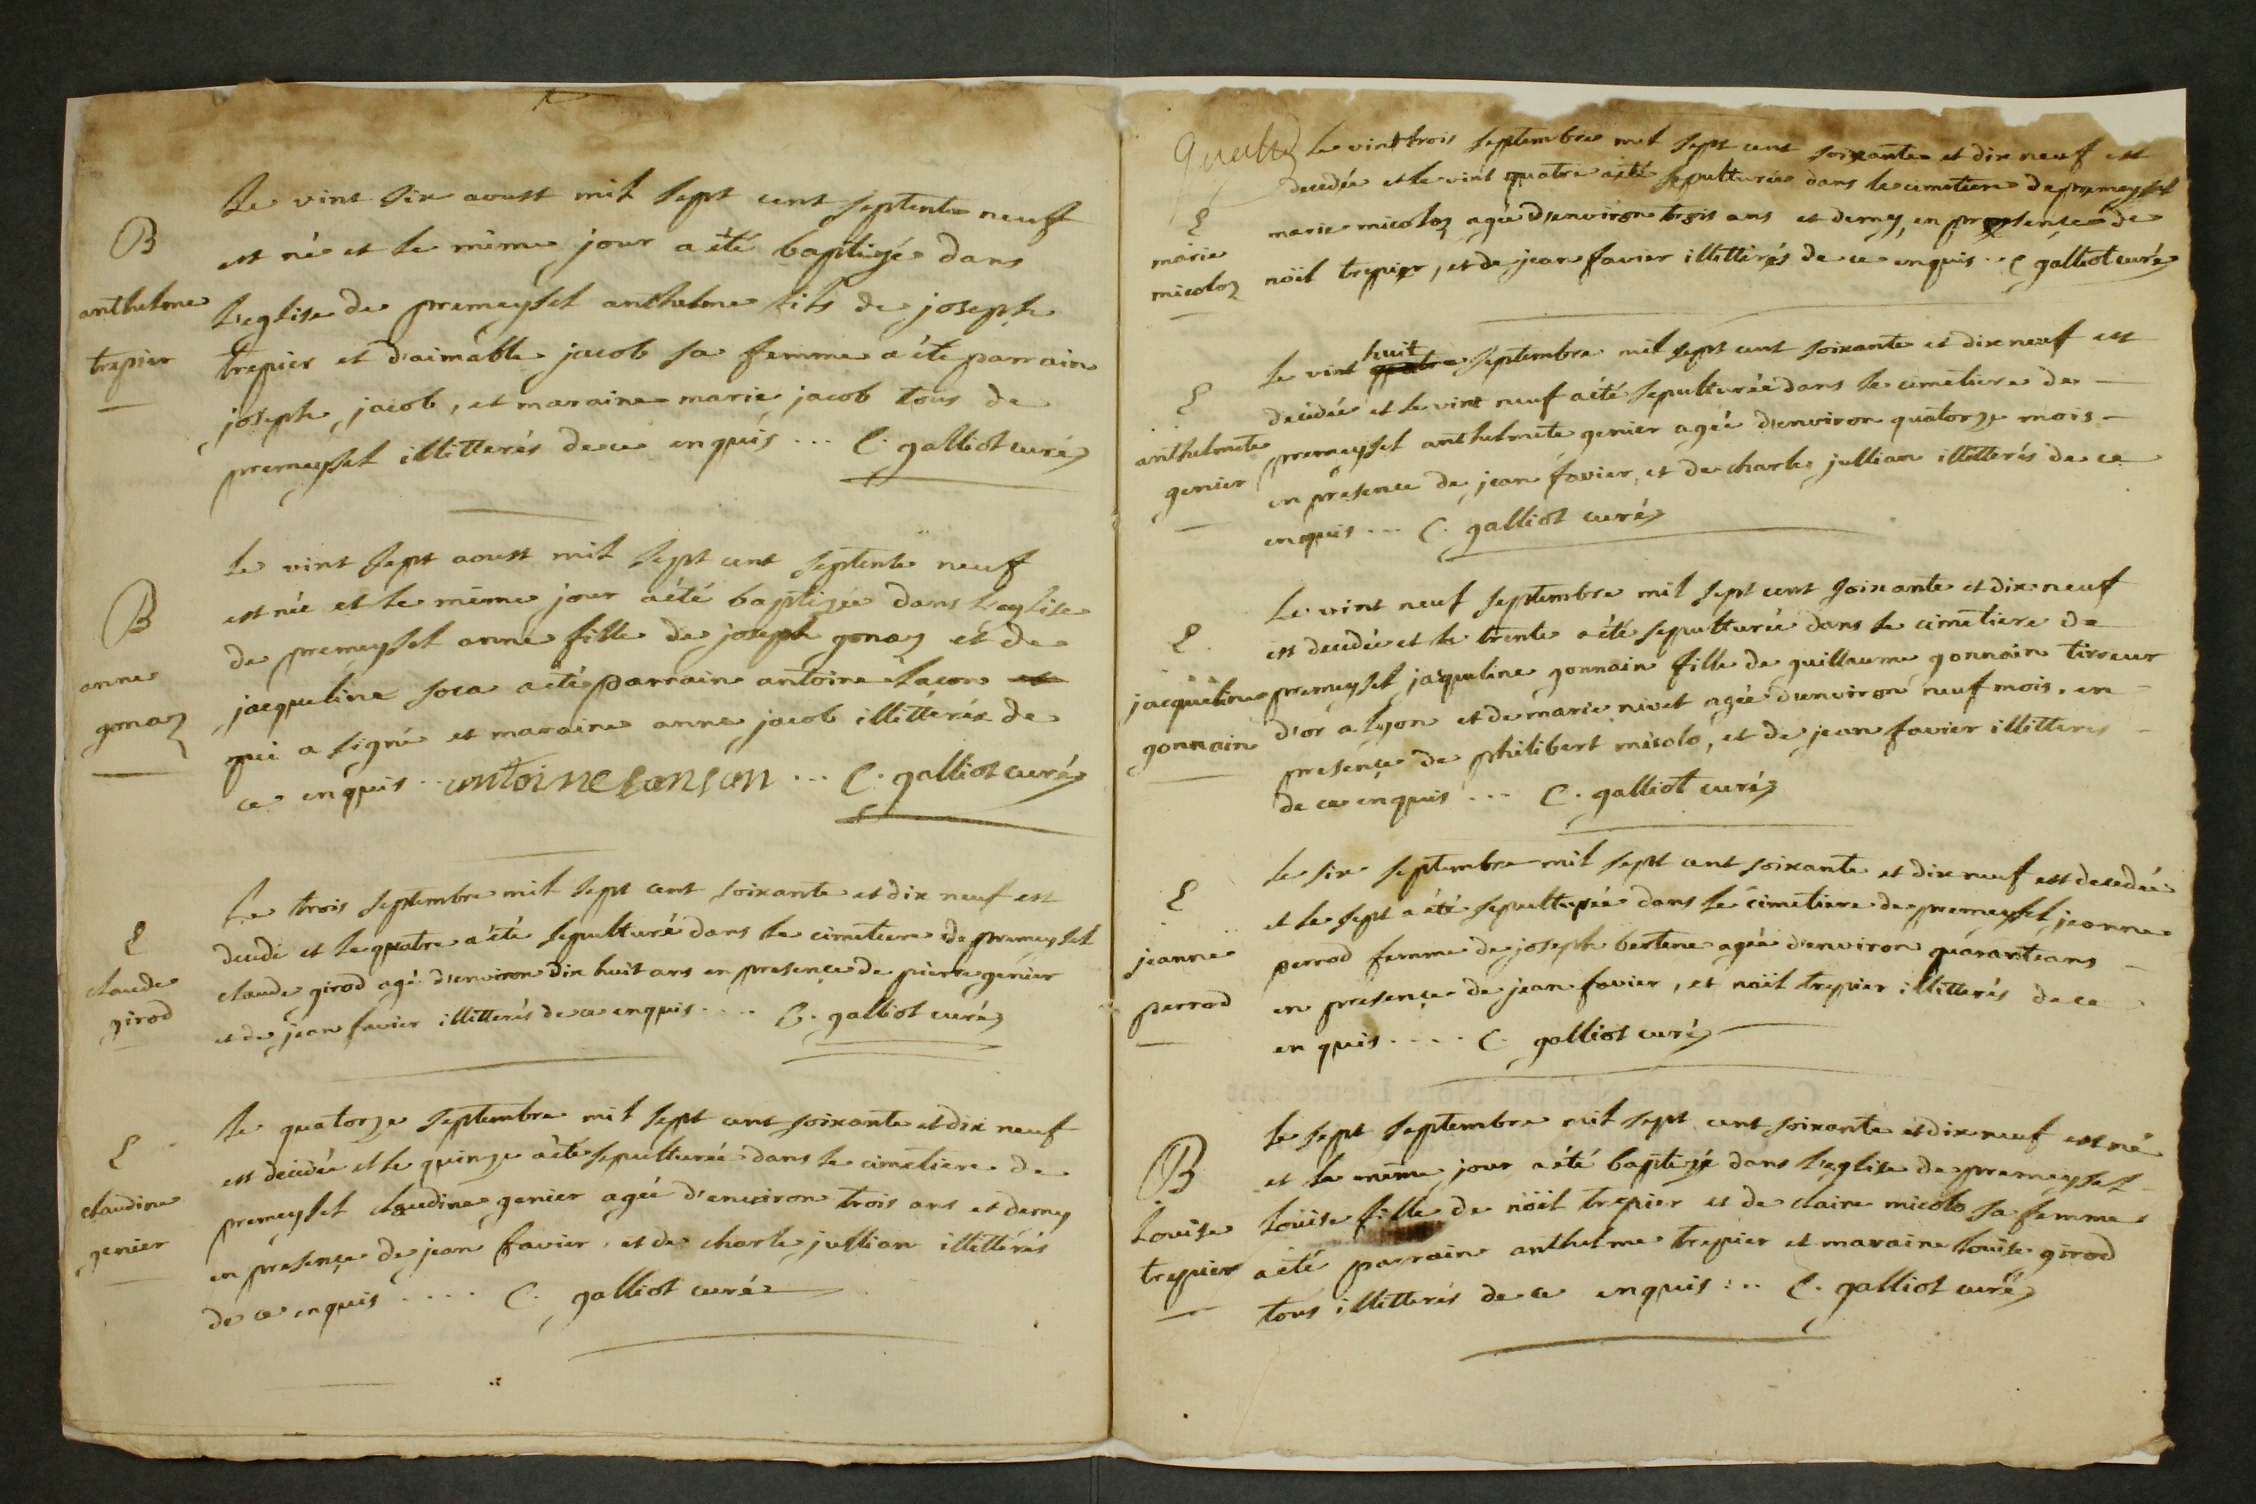 B
anthelme
trepier
Le vint six aoust mil sept cent septente neuf
est né et le même jour a été baptizé dans
L'eglise de premeysel anthelme fils de joseph
trepier et d'aimable jacob sa femme a été parrain
joseph jacob, et maraine marie jacob tous de
premeysel illitterés de ce enquis ... C. galliot curé
B
anne
gonaz
Le vint sept aoust mil sept cent septente neuf
est née et le même jour a été baptizée dans L'eglise
de premeysel anne fille de joseph gonaz et de
jacqueline soca a été parrain antoine
qui a signé et maraine anne jacob illitterée de
ce enquis .. antoine sanson ... C. galliot curé
S
claude
girod
Le trois septembre mil sept cent soixante et dix neuf est
decidé et le quatre a été sepulturé dans le cimetiere de premeysel
claude girod agé d'environ dix huit ans en presençe de pierre genier
et de jean favier illitterés de ce enquis .... C. galliot curé
S
claudine
genier
Le quatorze septembre mil sept cent soixante et dix neuf
est decidée et le quinze a été sepulturée dans le cimetiere de
premeysel claudine genier agée d'environ trois ans et demy
en presençe de jean favier et de charle jullian illitterés
de ce enquis .... C. galliot curé
S
marie
micoloz
Le vint trois septembre mil sept cent soixante et dix neuf est
decedée et le vint quatre a été sepulturée dans le cimetiere de premeysel
marie micoloz agée d'environ trois ans et demy, en presençe de
noïl trepier, et de jean favier illitterés de ce enquis .. C galliot curé
S
anthelmete
genier
Le vint quatre huit septembre mil sept cent soixante et dix neuf est
decidée et le vint neuf a été sepulturée dans le cimetiere de
premeysel anthelmete genier agée d'environ quatorze mois
en presence de jean favier, et de charle jullian illitterés de ce
enquis ... C. galliot curé
S
jacqueline
gonnain
Le vint neuf septembre mil sept cent soixante et dix neuf
est decedée et le trente a été sepulturée dans le cimetiere de
premeysel jaqueline gonnain fille de guillaume gonnain tireur
d'or a lyon et de marie nivet agée d'environ neuf mois. en
presençe de philibert micolo, et de jean favier illitteres
de ce enquis ... C. galliot curé
S
jeanne
perrod
Le six septembre mil sept cent soixante et dix neuf est decedée
et le sept a été sepulturée dans le cimetiere de premeysel jeanne
perrod femme de joseph bertene agée d'environ quarante ans
en presençe de jean favier, et noïl trepier illitterés de ce
enquis .... C. galliot curé
B
Louise
trepier
Le sept septembre mil sept cent soixante et dix neuf est né
et le même jour a été baptizé dans l'eglise de premeysel
Loüise fille de noïl trepier et de claire micolo sa femme
a été parrain anthelme trepier et maraine Louise girod
tous illitterés de ce enquis ... C. galliot curé